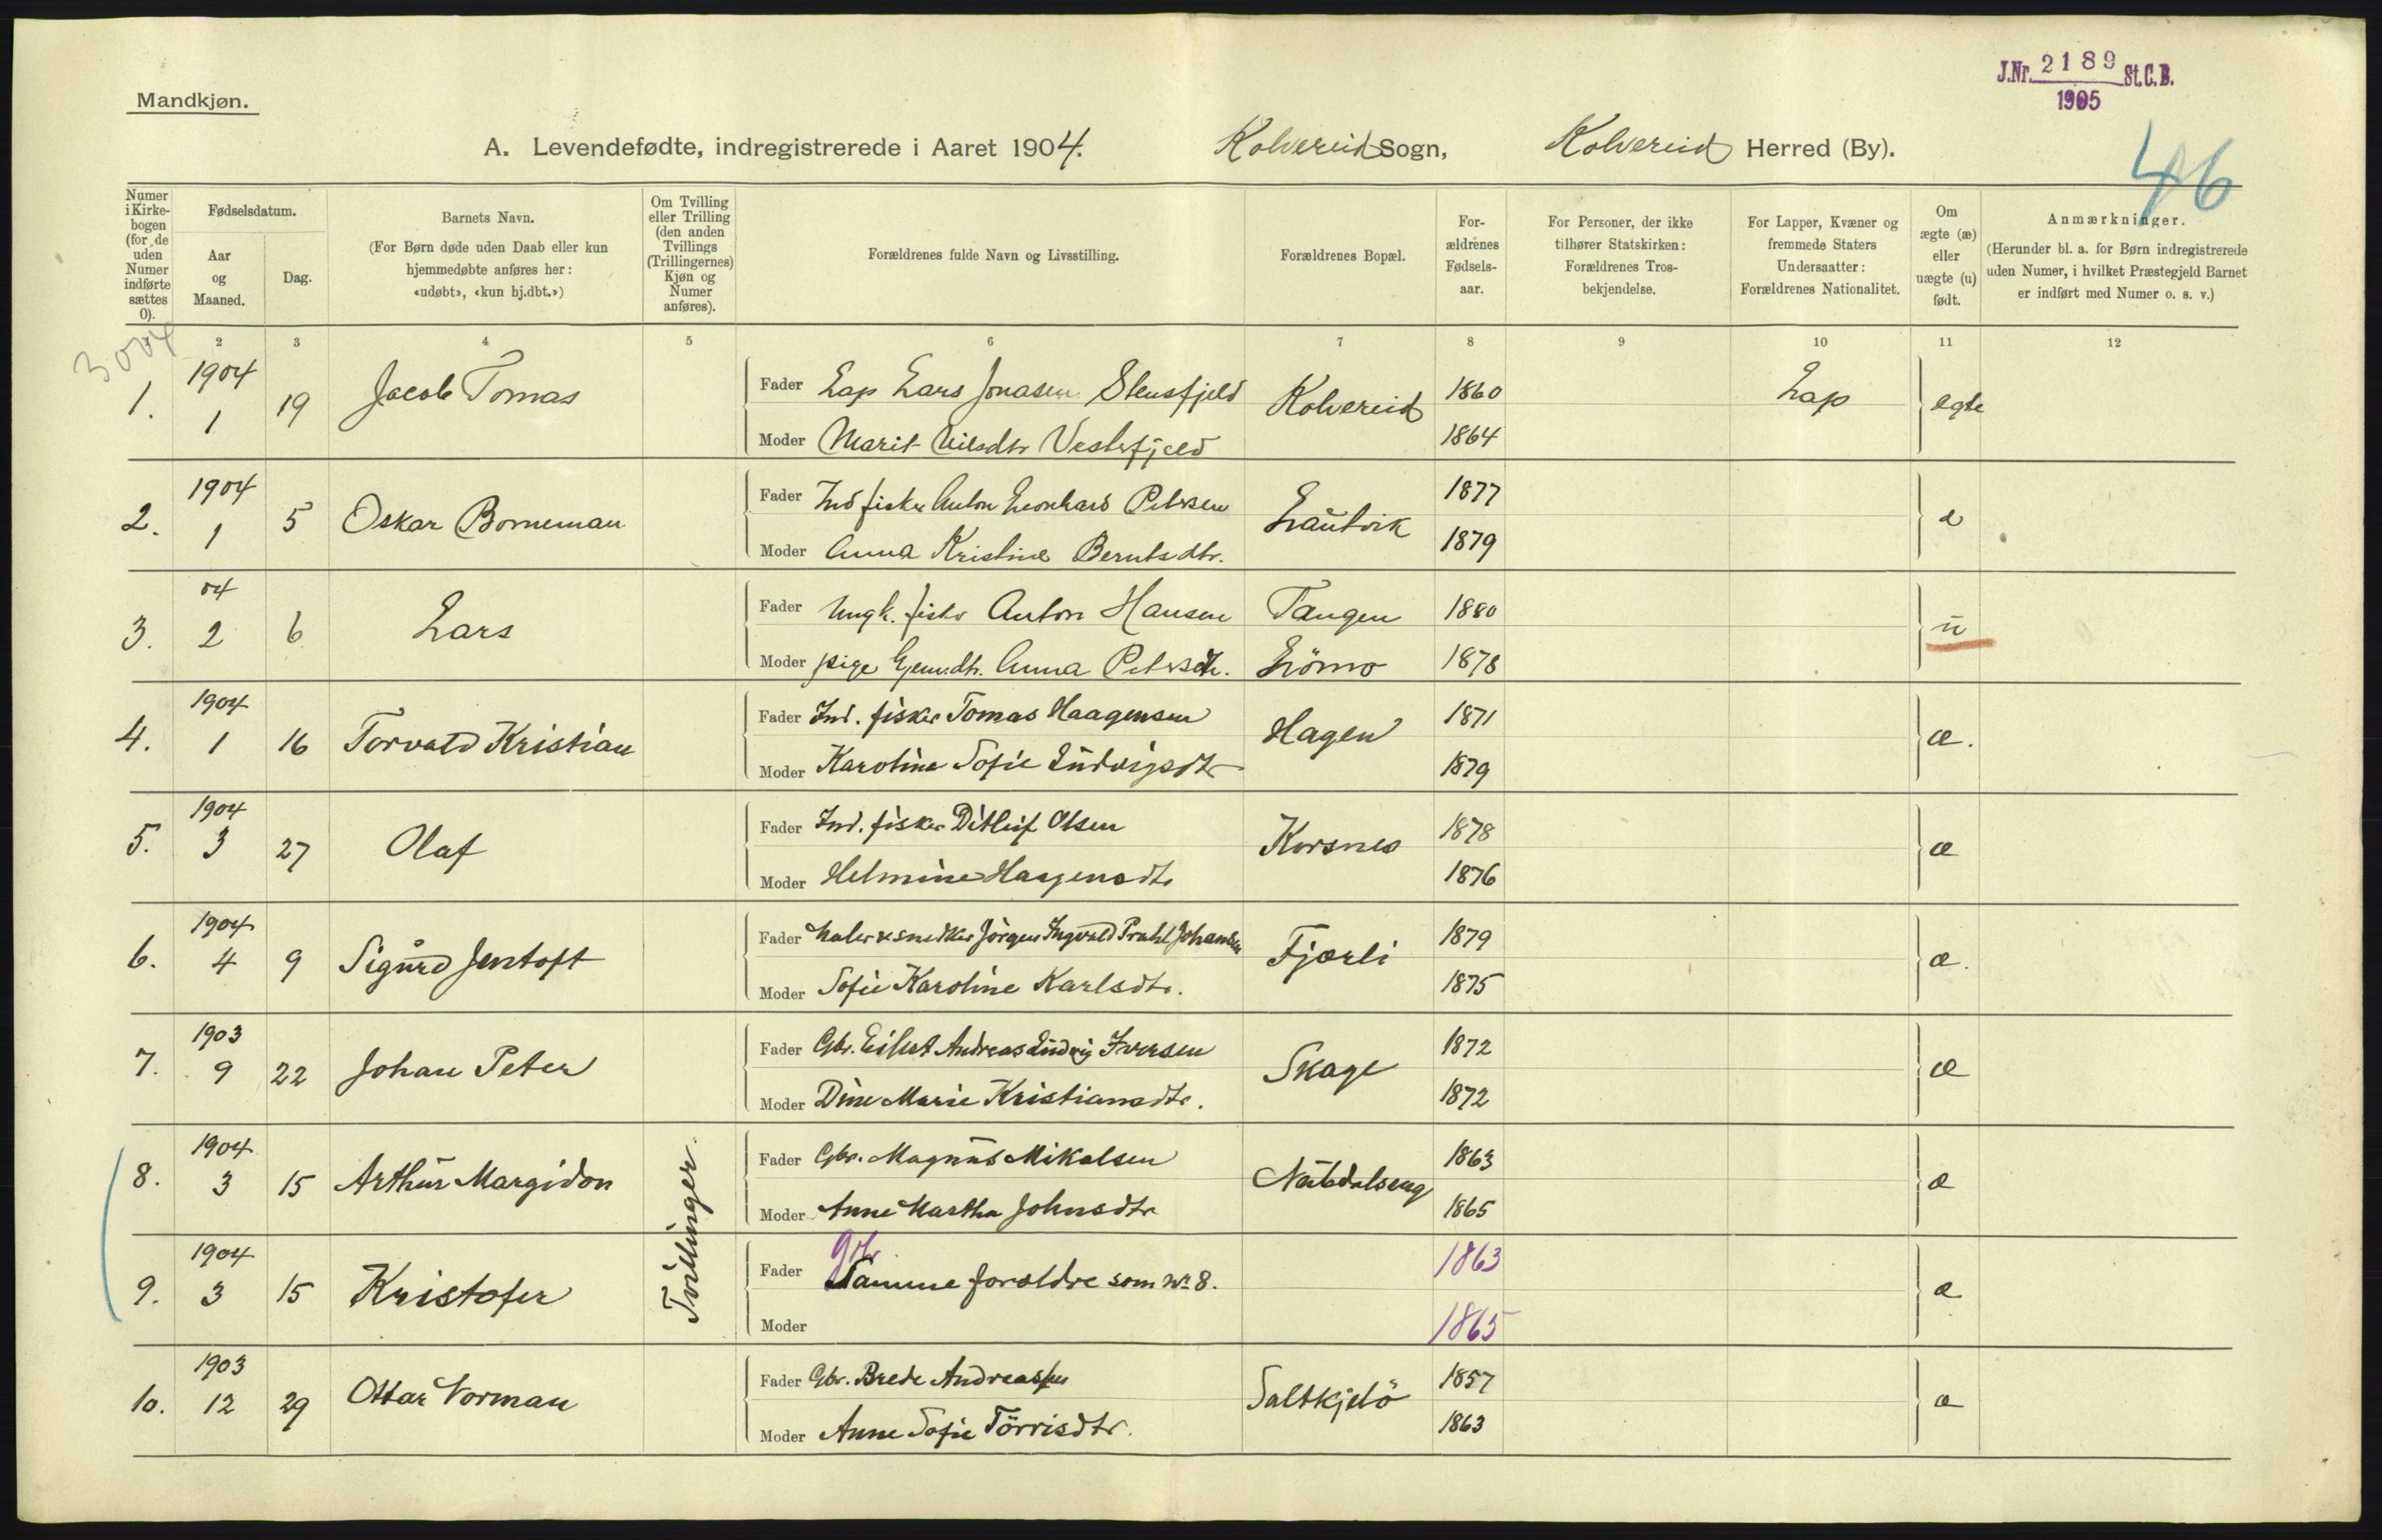 J.Nr. 2189 St.C.B.
1905
46
Mandkjøn.
A. Levendefødte, indregistrerede i Aaret 1904. Kolvereid Sogn, Kolvereid Herred (By).
Numer i Kirkebogen (for de uden Numer indførte sættes 0).
Fødselsdatum.
Aar og Maaned.
Dag.
Barnets Navn.
(For Børn døde uden Daab eller kun hjemmedøbte anføres her: «udøbt», «kun hj.dbt.»)
Om Tvilling eller Trilling (den anden Tvillings (Trillingernes) Kjøn og Numer anføres).
Forældrenes fulde Navn og Livsstilling.
Forældrenes Bopæl.
For-ældrenes Fødsels-aar.
For Personer, der ikke tilhører Statskirken: Forældrenes Tros-bekjendelse.
For Lapper, Kvæner og fremmede Staters Undersaatter: Forældrenes Nationalitet.
Om ægte (æ) eller uægte (u) født.
Anmærkninger.
(Herunder bl. a. for Børn indregistrerede uden Numer, i hvilket Præstegjeld Barnet er indført med Numer o. s. v.)
2 3 4 5 6 7 8 9 10 11 12
3004
1. 1904 1 19 Jacob Tomas Fader Lap Lars Jonasen Stensfjeld Kolvereid 1860 Lap egte
Moder Marit Nilsdtr Vestrfjeld 1864
2. 1904 1 5 Oskar Borneman Fader Ind fisker Anton Leonhard Petersen 1877 æ
Moder Anna Kristine Berntsdtr. 1879
3. 04 2 6 Lars Fader Ungk. fisker Anton Hansen Tangen 1880 u
Moder pige Anna Petersdtr. 1878
4. 1904 1 16 Torvald Kristian Fader Ind. fisker Tomas Haagensen Hagen 1871 æ.
Moder Karoline Sofie Ludvigsdtr 1879
5. 1904 3 27 Olaf Fader Ind. fisker Ditlef Olsen Korsnes 1878 æ
Moder Helmine Haagensdtr 1876
6. 1904 4 9 Sigurd Jentoft Fader Maler & snedker Jörgen Ingvald Prahl Johansen Fjærli 1879 æ.
Moder Sofie Karoline Karlsdtr. 1875
7. 1903 9 22 Johan Peter Fader Gbr. Eilert Andreas Ludvig Iversen Skage 1872 æ
Moder Dine Marie Kristiansdtr. 1872
8. 1904 3 15 Arthur Margidon Tvillinger. Fader Gbr. Magnus Mikalsen 1863 æ
Moder Anne Martha Johnsdtr 1865
9. 1904 3 15 Kristofer Fader Gbr. Samme forældre som No 8. 1863 æ
Moder 1865
10. 1903 12 29 Ottar Norman Fader Gbr. Brede Andreassen Saltkjelö 1857 æ
Moder Anne Sofie Törrisdtr. 1863